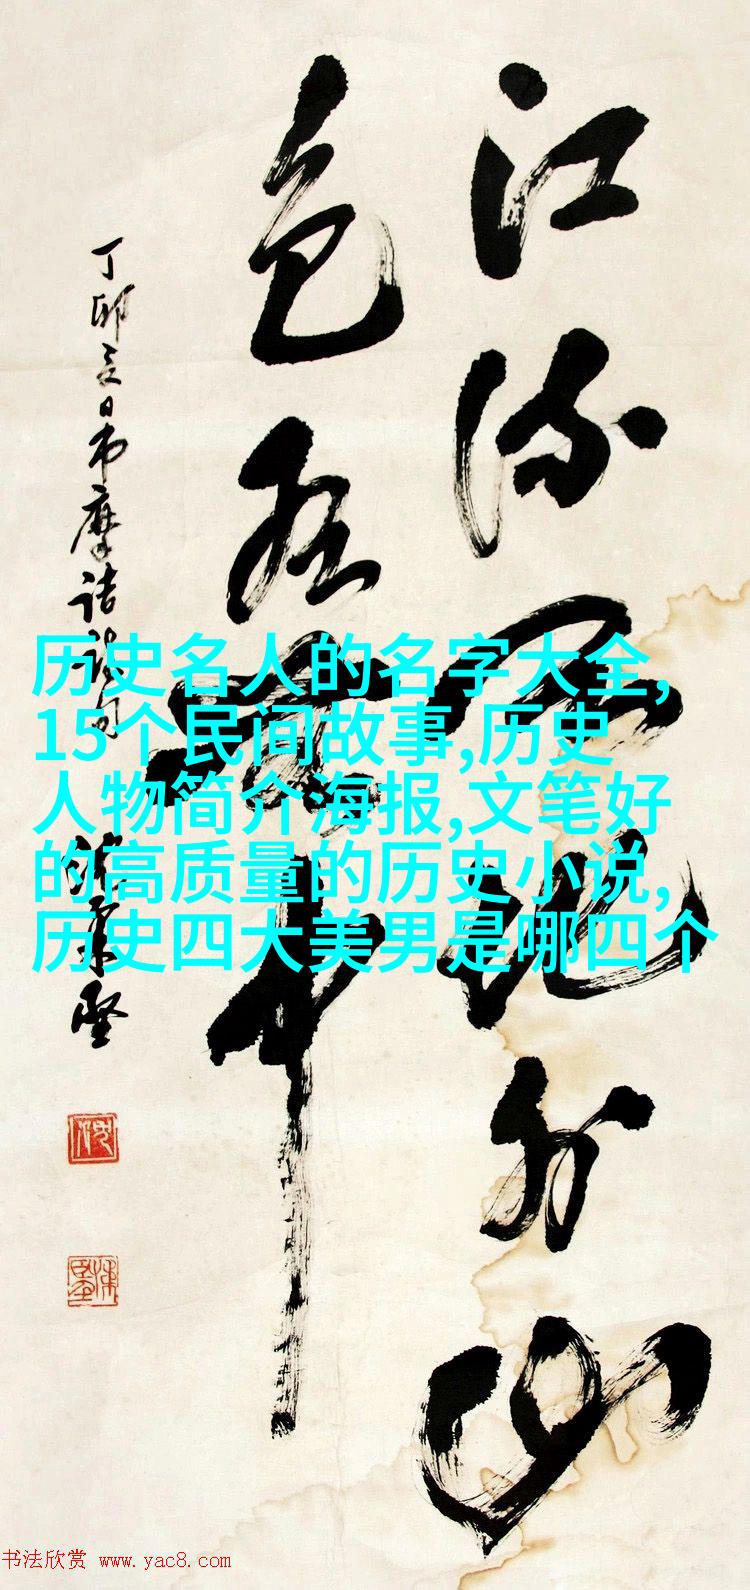 江流天地外山
色有无中
丁卯夏日书摩诘诗句
历史名人的名字大全,
15个民间故事,历史
人物简介海报,文笔好
的高质量的历史小说,
历史四大美男是哪四个
书法欣赏 www.yac8.com